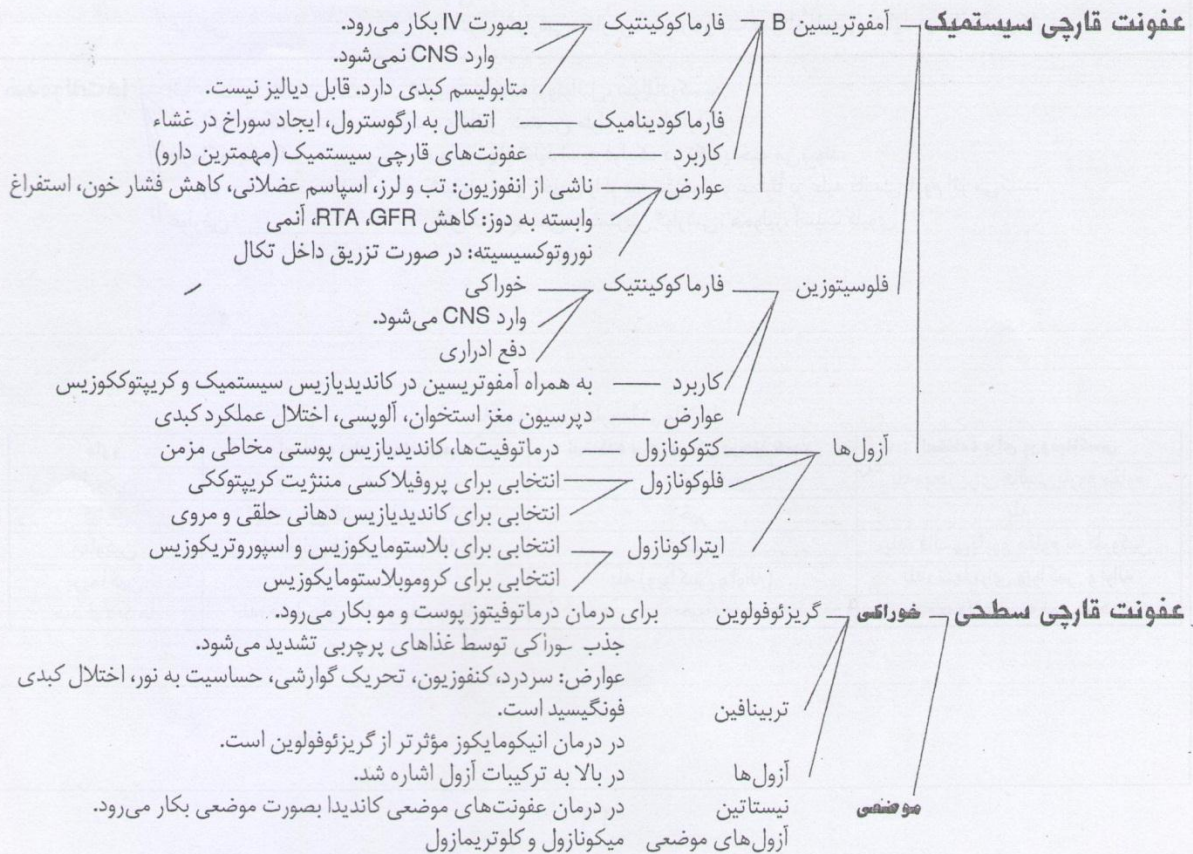 عفونت قارچی سیستمیک آمفوتریسین B فارماکوکینتیک بصورت IV بکار می‌رود.
وارد CNS نمی‌شود.
متابولیسم کبدی دارد. قابل دیالیز نیست.
فارماکودینامیک اتصال به ارگوسترول، ایجاد سوراخ در غشاء
کاربرد عفونت‌های قارچی سیستمیک (مهمترین دارو)
عوارض ناشی از انفوزیون: تب و لرز، اسپاسم عضلانی، کاهش فشار خون، استفراغ
وابسته به دوز: کاهش GFR، RTA، آنمی
نوروتوکسیسیته: در صورت تزریق داخل تکال
فلوسیتوزین فارماکوکینتیک خوراکی
وارد CNS می‌شود.
دفع ادراری
کاربرد به همراه آمفوتریسین در کاندیدیازیس سیستمیک و کریپتوککوزیس
عوارض دپرسیون مغز استخوان، آلوپسی، اختلال عملکرد کبدی
آزول‌ها کتوکونازول درماتوفیت‌ها، کاندیدیازیس پوستی مخاطی مزمن
فلوکونازول انتخابی برای پروفیلاکسی مننژیت کریپتوککی
انتخابی برای کاندیدیازیس دهانی حلقی و مروی
ایتراکونازول انتخابی برای بلاستومایکوزیس و اسپوروتریکوزیس
انتخابی برای کروموبلاستومایکوزیس
عفونت قارچی سطحی خوراکی گریزئوفولوین برای درمان درماتوفیتوز پوست و مو بکار می‌رود.
جذب خوراکی توسط غذاهای پرچربی تشدید می‌شود.
عوارض: سردرد، کنفوزیون، تحریک گوارشی، حساسیت به نور، اختلال کبدی
تربینافین فونگیسید است.
در درمان انیکومایکوز مؤثرتر از گریزئوفولوین است.
آزول‌ها در بالا به ترکیبات آزول اشاره شد.
موضعی نیستاتین در درمان عفونت‌های موضعی کاندیدا بصورت موضعی بکار می‌رود.
آزول‌های موضعی میکونازول و کلوتریمازول